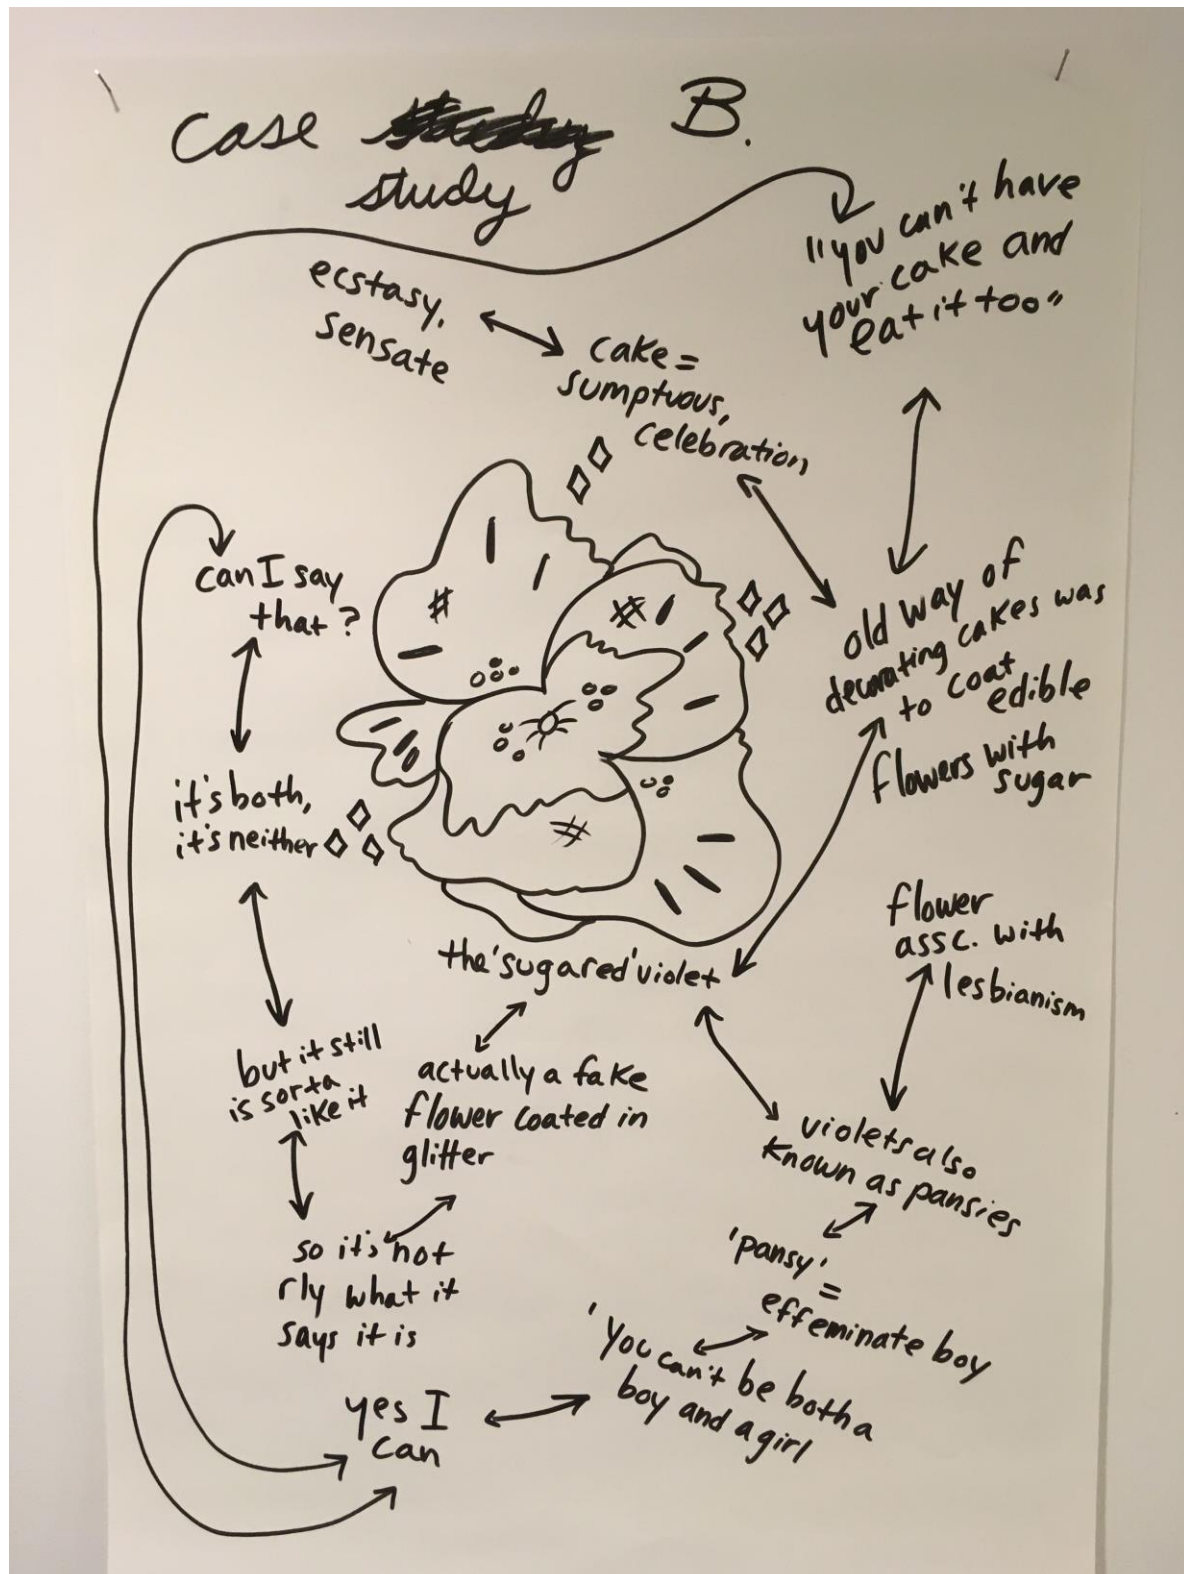 case B.
study
"you can't have
your cake and
eat it too"
ecstasy,
sensate
cake =
sumptuous,
celebration
can I say
that?
old way of
decorating cakes was
to coat
edible
flowers with
sugar
it's both,
it's neither
flower
assc. with
lesbianism
the 'sugared' violet
but it still
is sorta
like it
actually a fake
flower coated in
glitter
violets also
known as pansies
so it's not
rly what it
says it is
'pansy' =
effeminate boy
'You can't be both a
boy and a girl
yes I
can